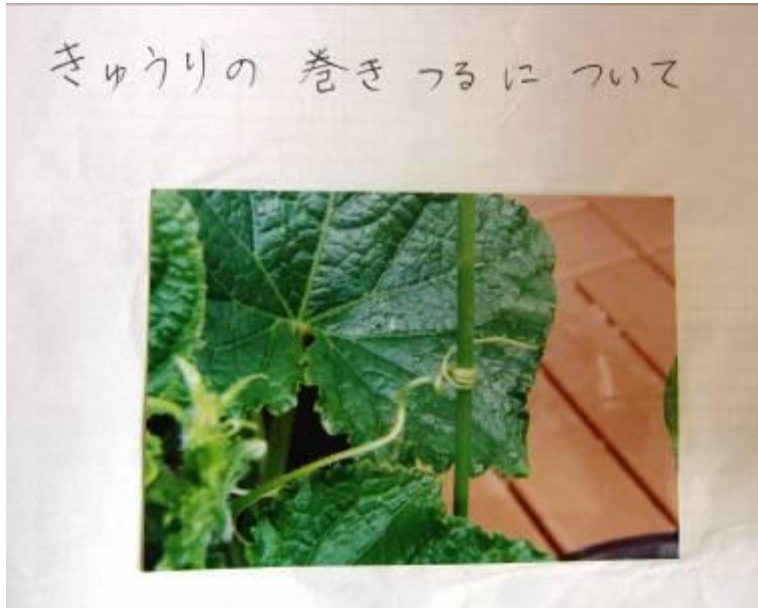 きゅうりの 巻き つるに ついて